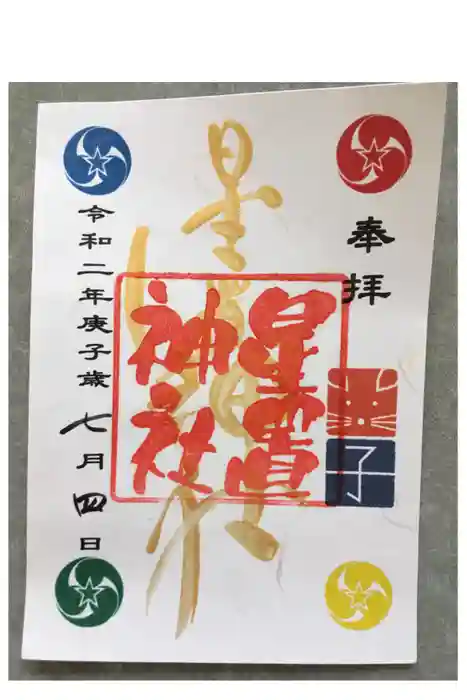 奉拝
子
星置神社
星置神社
令和二年庚子歳七月四日